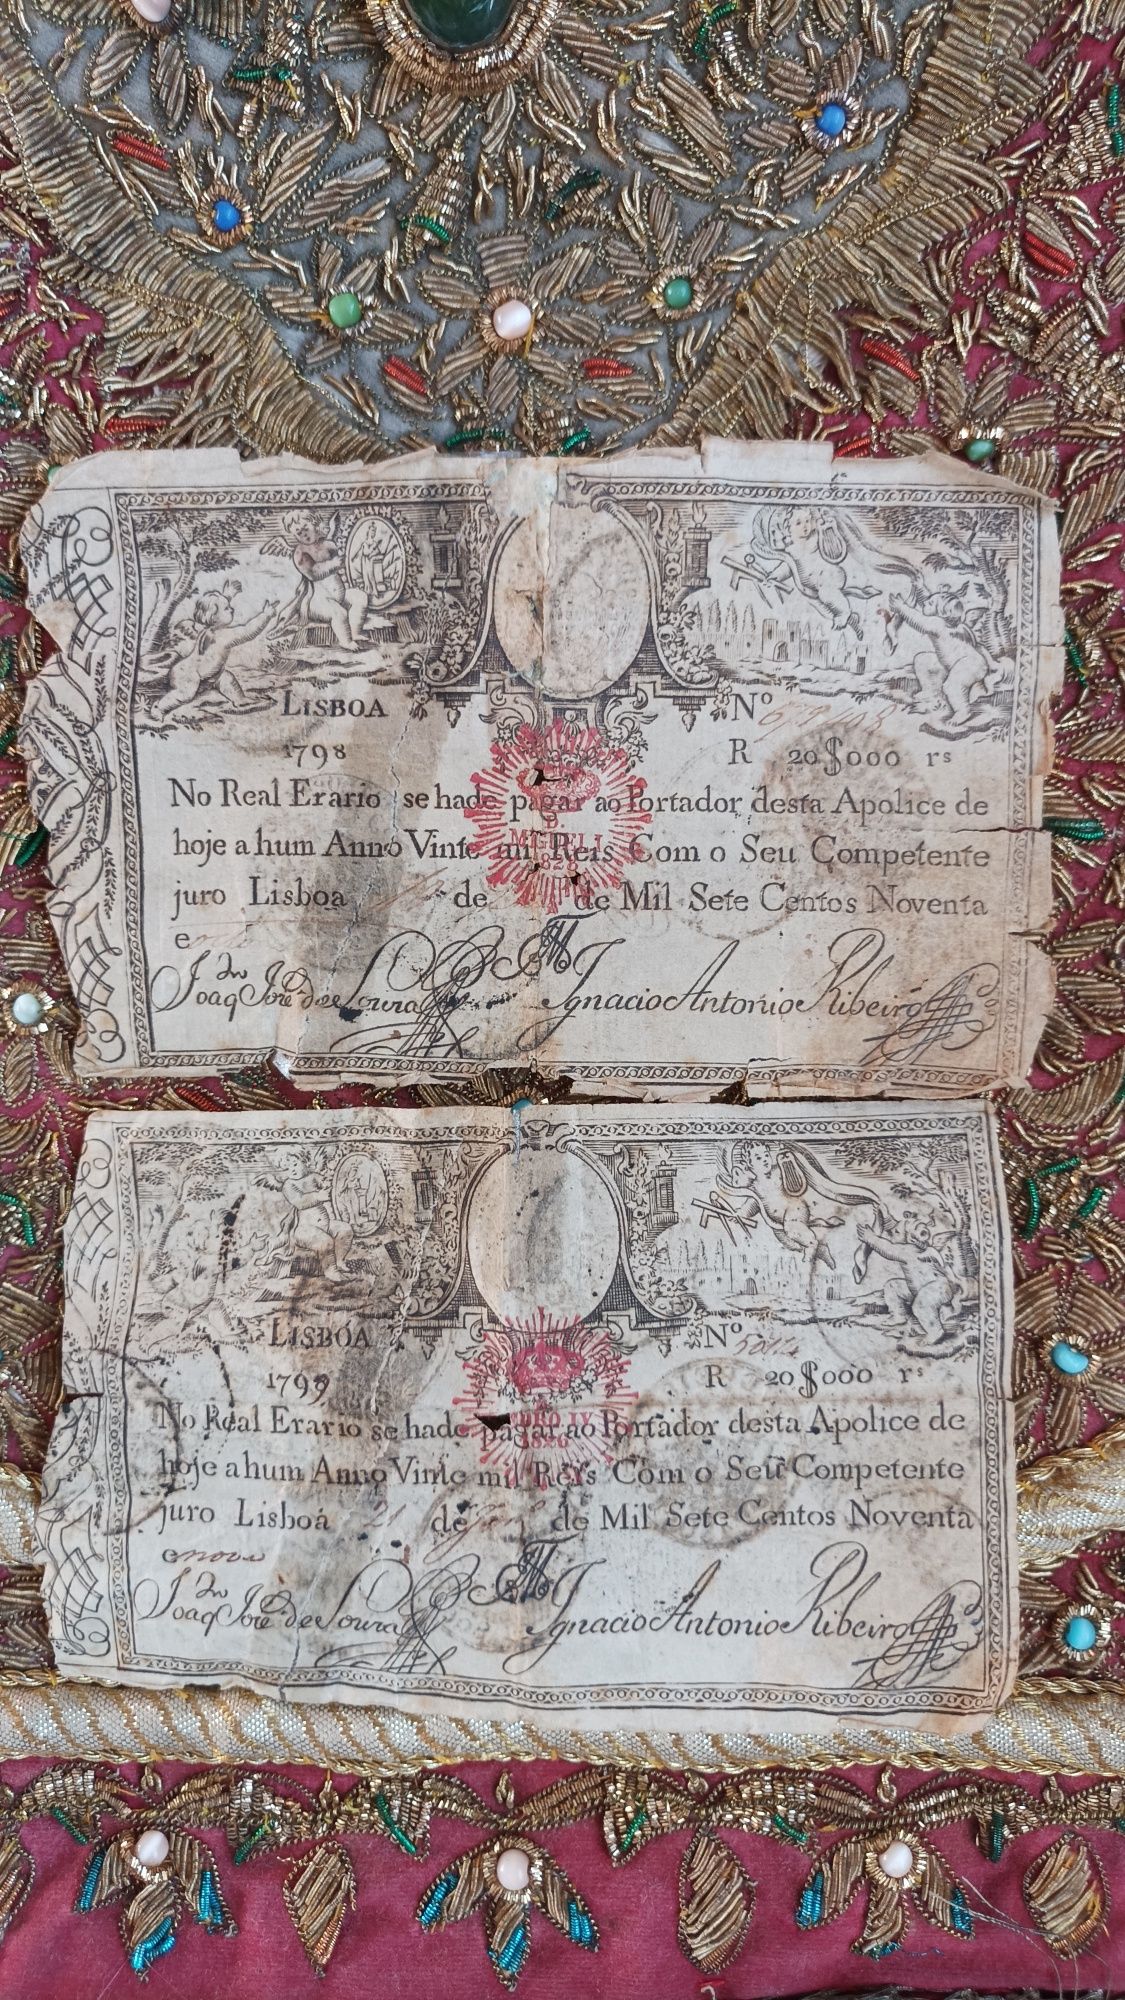 LISBOA Nº
1798 R 20$000 rs
No Real Erario se hade pagar ao Portador desta Apolice de
hoje a hum Anno Vinte mil Reis Com o Seu Competente
juro Lisboa de de Mil Sete Centos Noventa
e
D.
MIGUEL I
1828
Joaqm José de Soura Ignacio Antonio Ribeiro
LISBOA Nº
1799 R 20$000 rs
No Real Erario se hade pagar ao Portador desta Apolice de
hoje a hum Anno Vinte mil Reis Com o Seu Competente
juro Lisboa 21 de de Mil Sete Centos Noventa
e nove
PEDRO IV
1826
Joaqm José de Soura Ignacio Antonio Ribeiro